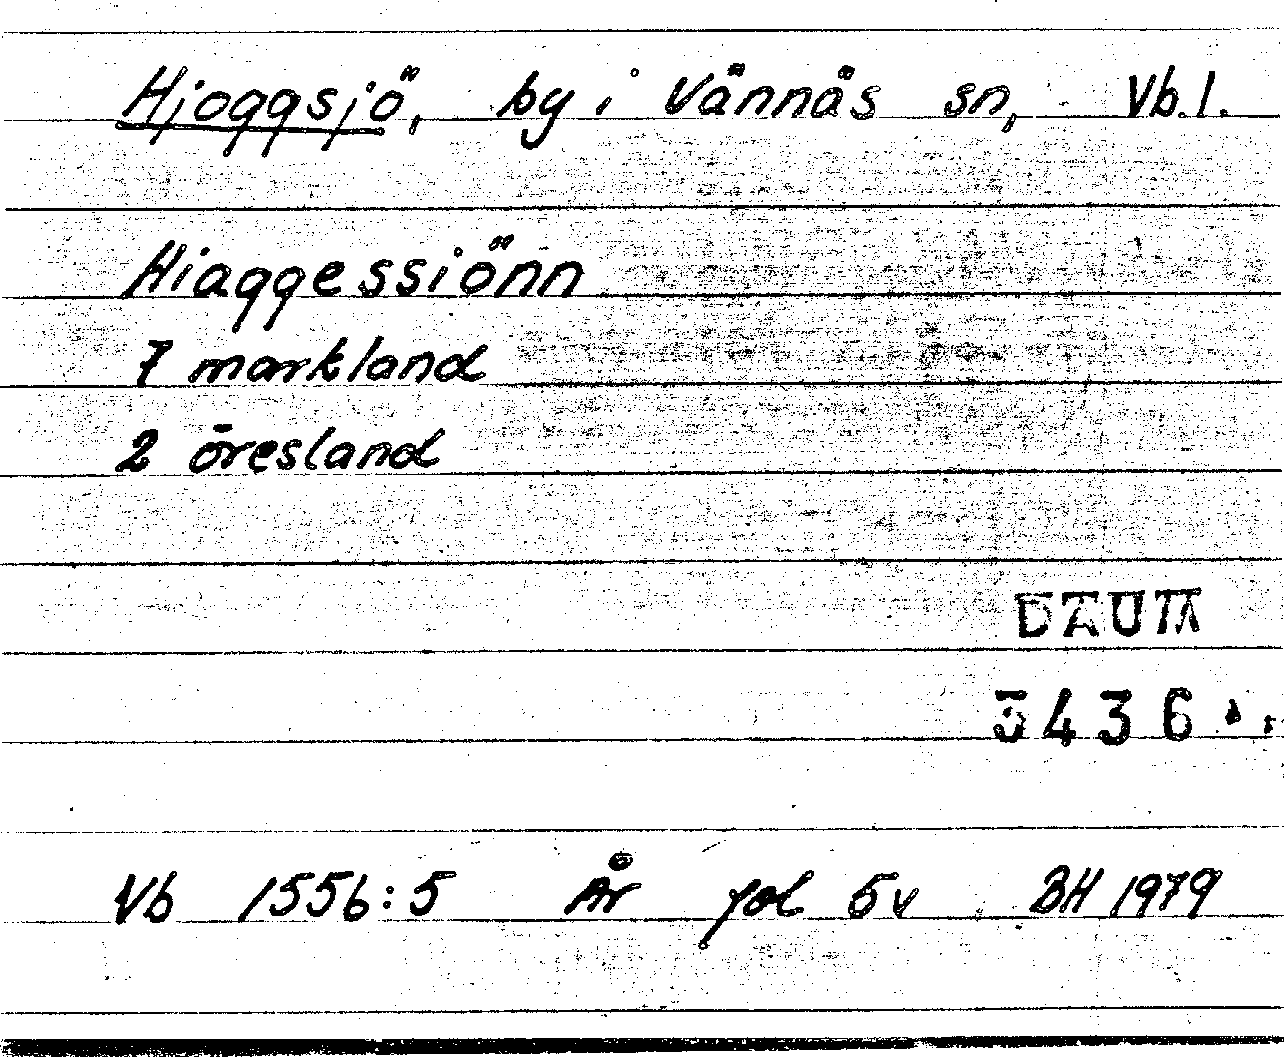 Hjoggsjö, by i Vännäs sn, Vb.l.
Hiaggessiönn
7 markland
2 öresland
DAUM
5436
Vb 1556:5 År fol 5v BH 1979